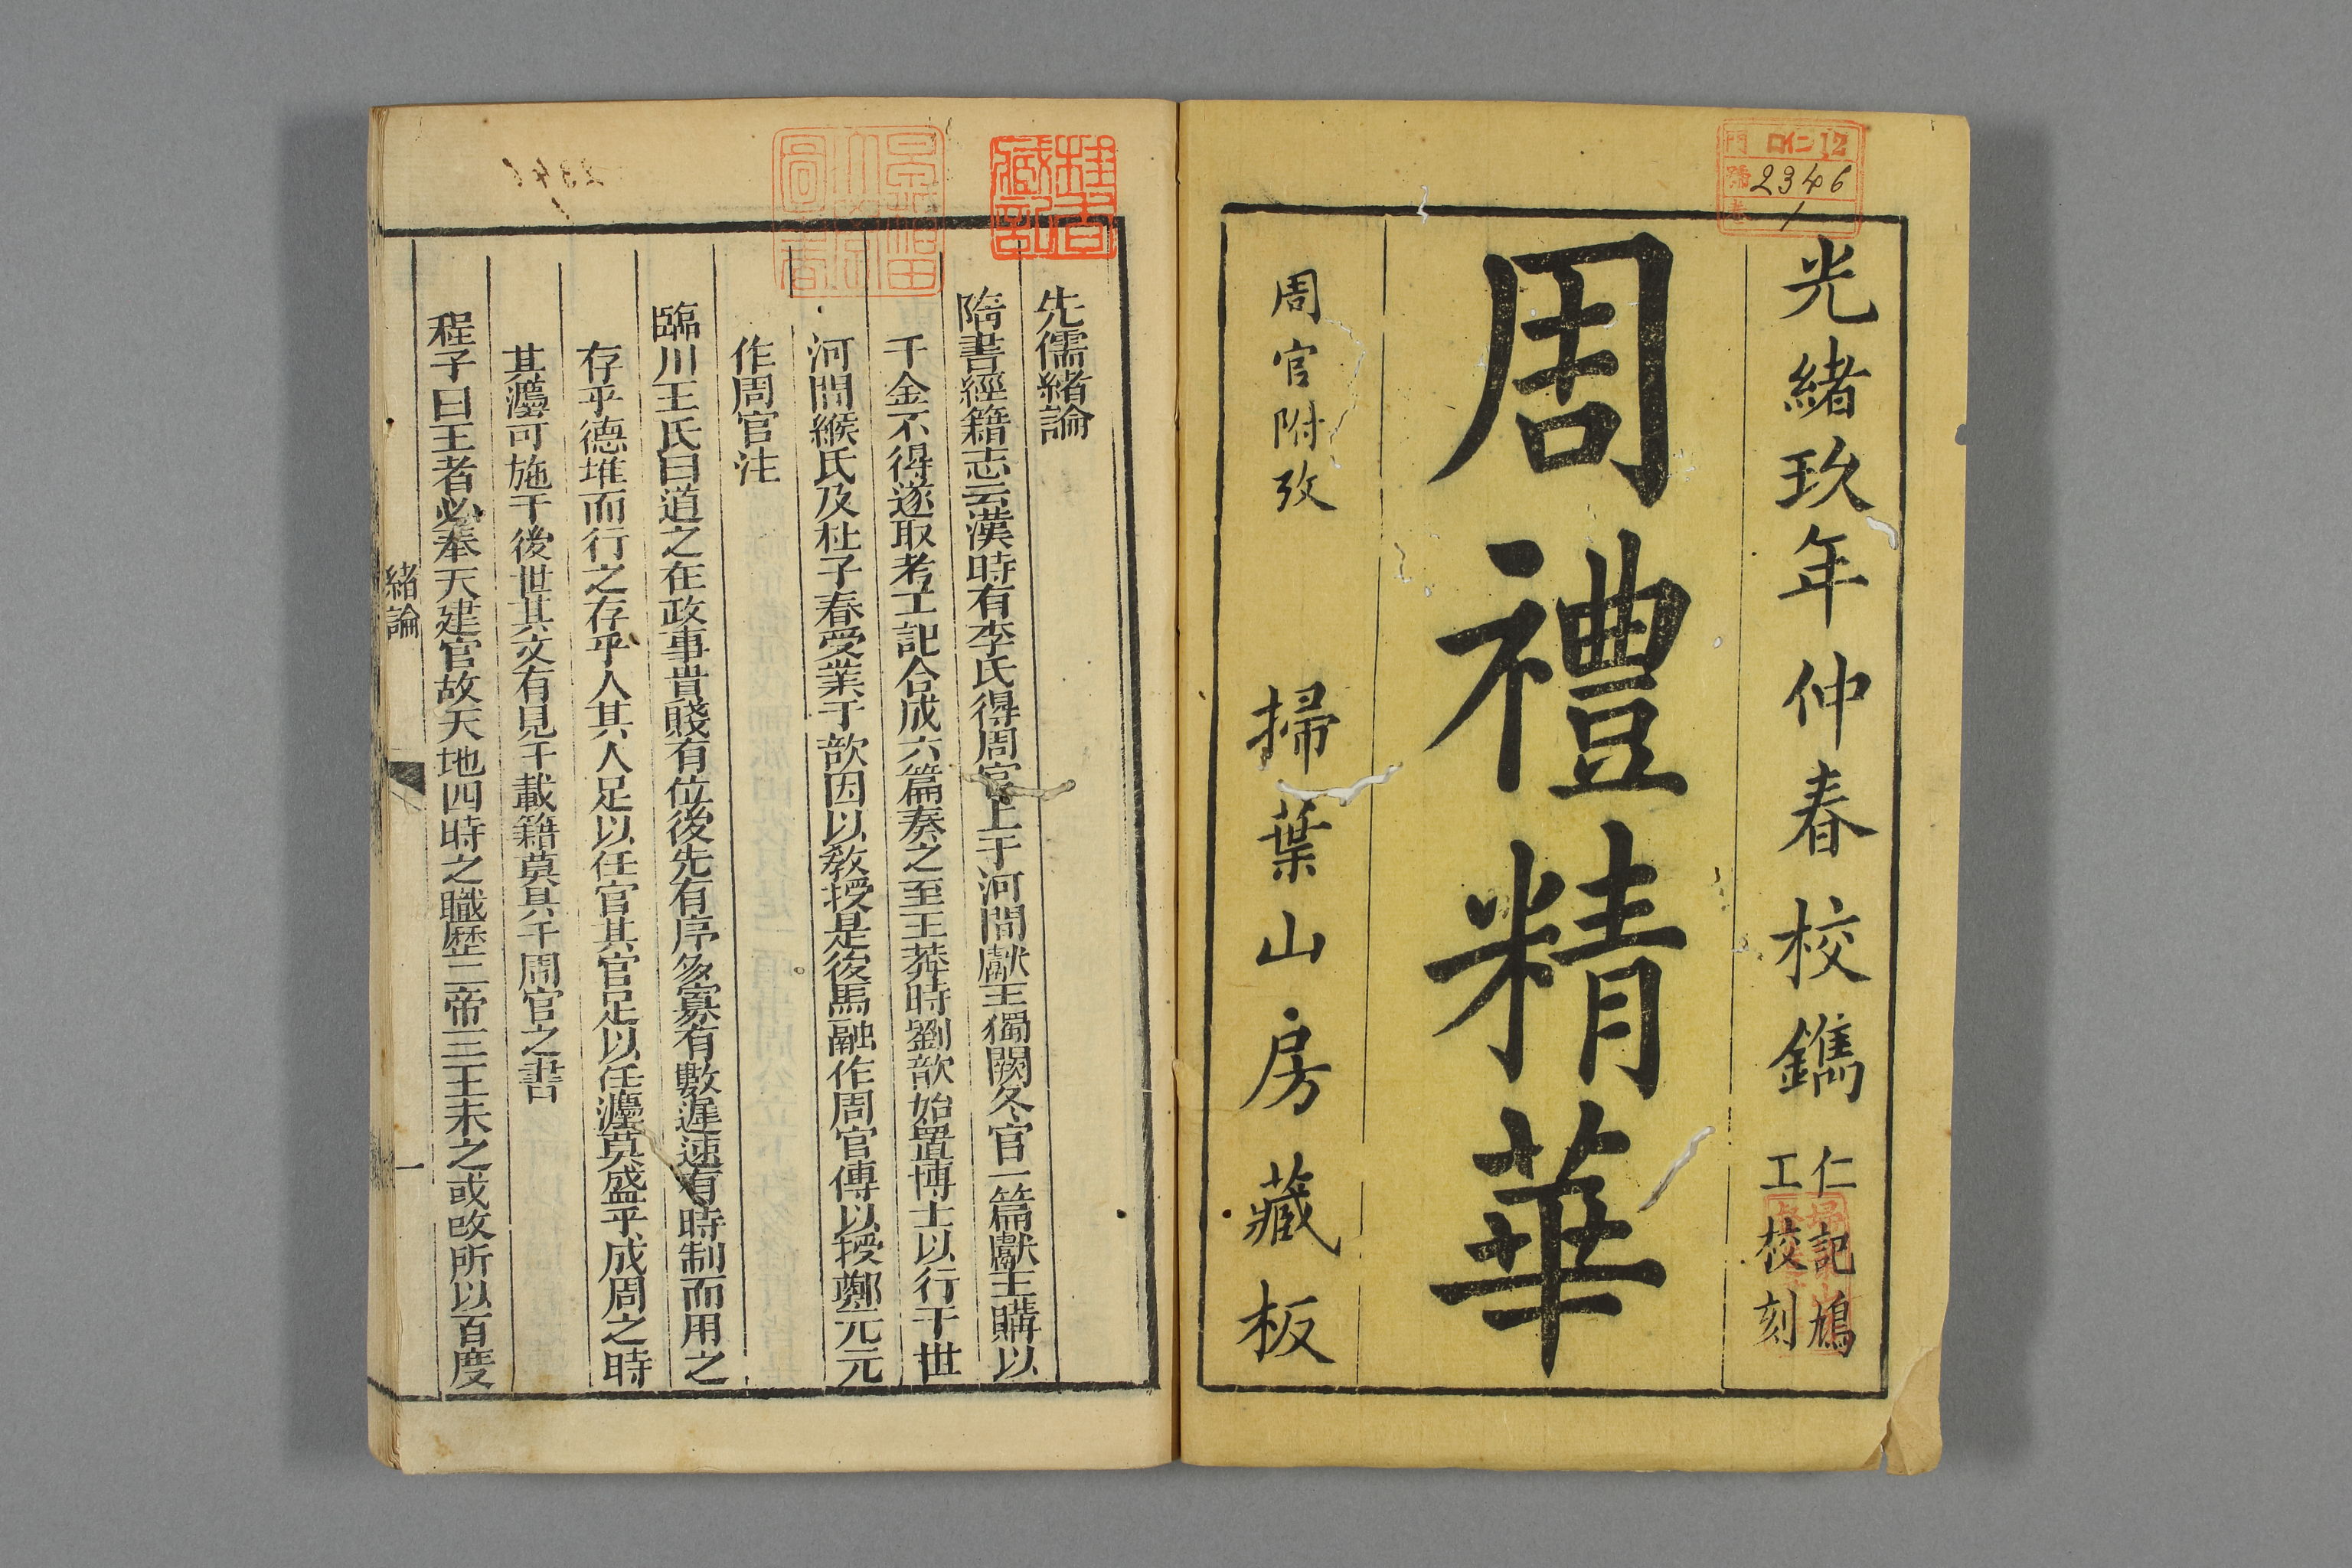 光緒玖年仲春校鐫
仁記鳩
工校刻
周禮精華
周官附攷
掃葉山房藏板
門 ロ仁12
號 2346
卷 1
先儒緒論
隋書經籍志云漢時有李氏得周官上于河間獻王獨闕冬官一篇獻王購以
千金不得遂取考工記合成六篇奏之至王莽時劉歆始置博士以行于世
河間緱氏及杜子春受業于歆因以教授是後馬融作周官傳以授鄭元元
作周官注
臨川王氏曰道之在政事貴賤有位後先有序多寡有數遲速有時制而用之
存乎德堆而行之存乎人其人足以任官其官足以任灋莫盛乎成周之時
其灋可施于後世其文有見于載籍莫具于周官之書
程子曰王者必奉天建官故天地四時之職歷二帝三王未之或改所以百度
緒論
一